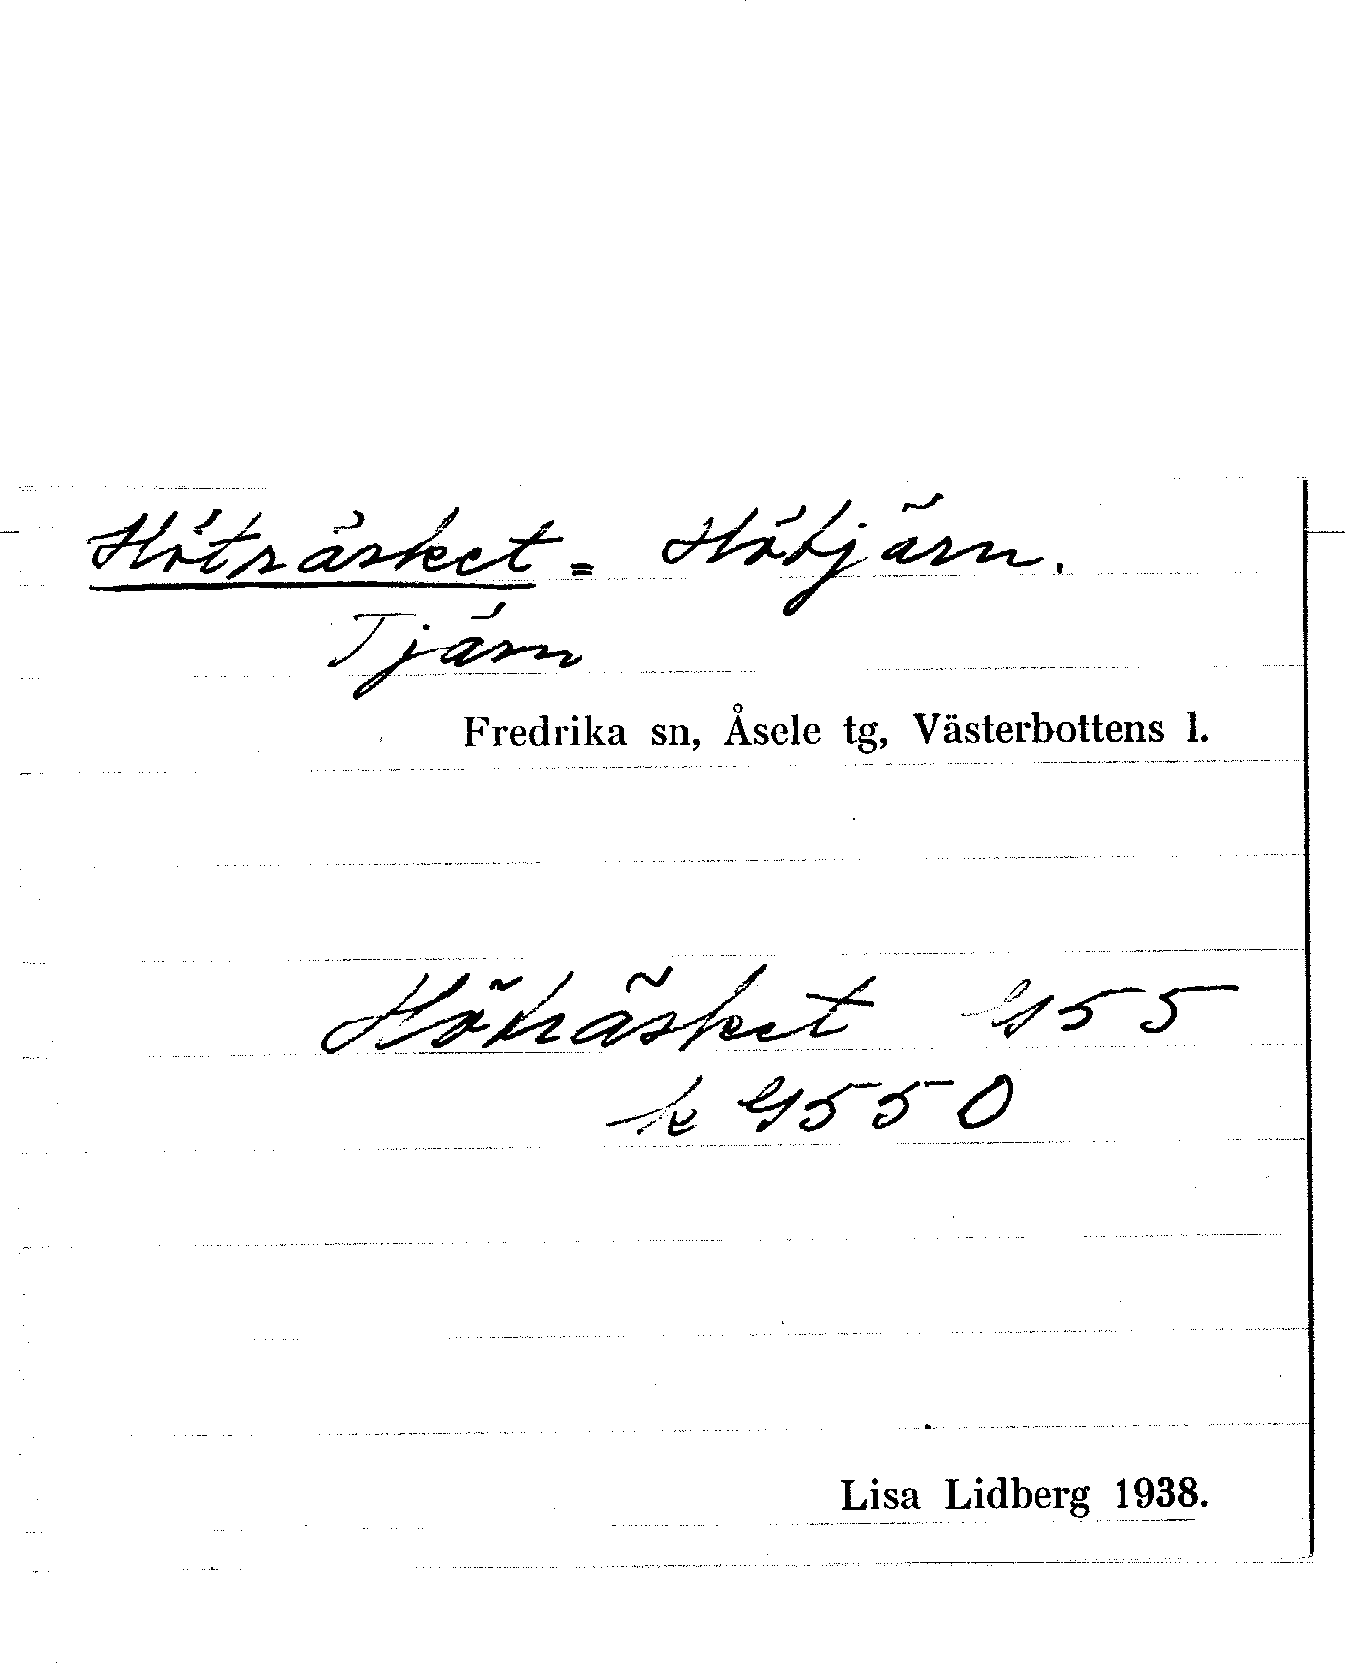 Höträsket = Hötjärn.
Tjärn
Fredrika sn, Åsele tg, Västerbottens l.
Höträsket G55
k G550
Lisa Lidberg 1938.